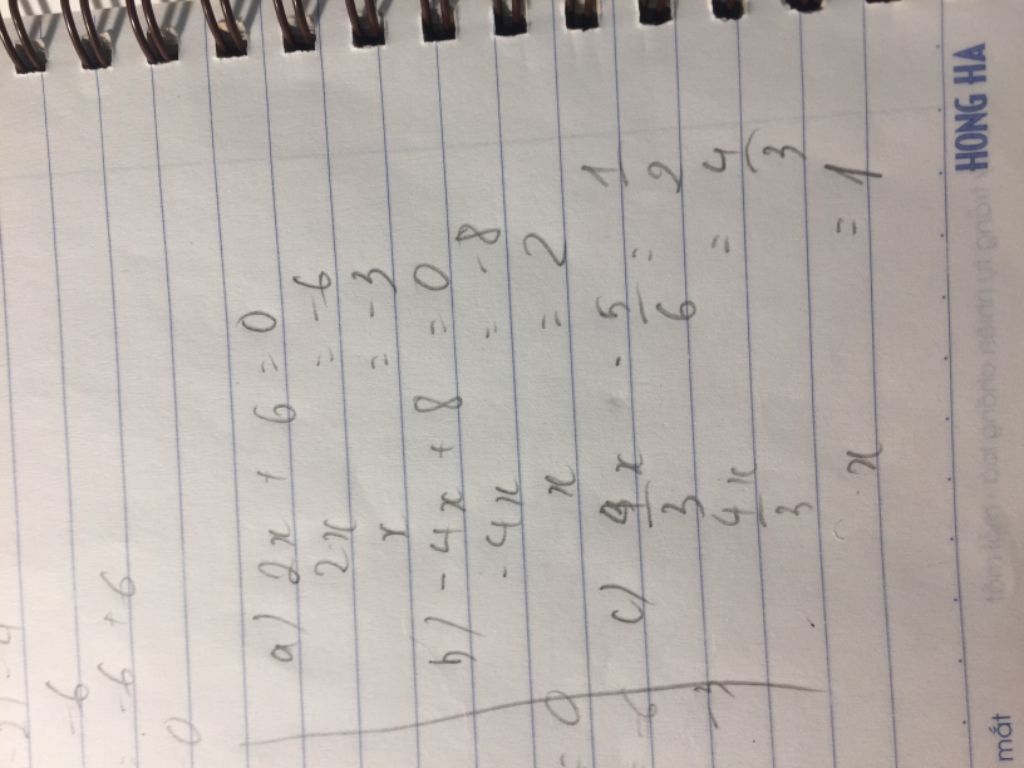 -6
-6 + 6
0
a) 2x + 6 = 0
2x = -6
x = -3
b) - 4x + 8 = 0
- 4x = -8
x = 2
c) 4/3 x - 5/6 = 1/2
4x/3 = 4/3
x = 1
= 0
HONG HA
mắt